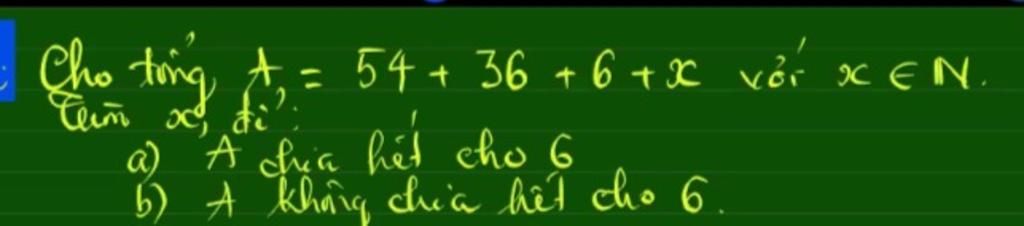 Cho tổng A = 54 + 36 + 6 + x với x ∈ N.
Tìm x, để:
a) A chia hết cho 6
b) A không chia hết cho 6.